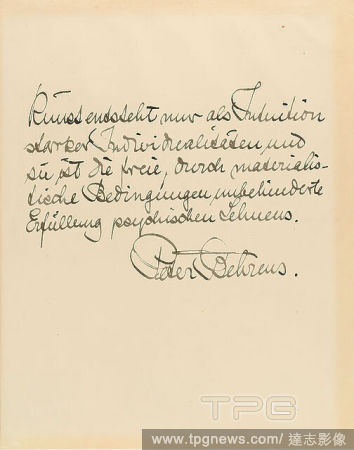 Kunst entsteht nur als Intuition
starker Individualitäten, und
sie ist die freie, durch materialis-
tische Bedingungen unbehinderte
Erfüllung psychischen Sehnens.
Peter Behrens.
TPG
www.tpgnews.com/ 達志影像